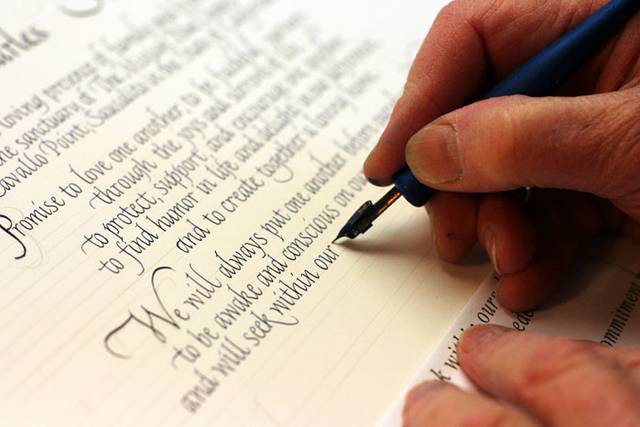 arles
loving presence of family
the sanctuary of The
Cavallo Point, Sausalito in the
Promise to love one another to be
through the joys and
to protect, support, and encourage
to find humor in life and delight in
and to create together a loving
We will always put one another before
to be awake and conscious on ou
and will seek within our
k within our
ommitment